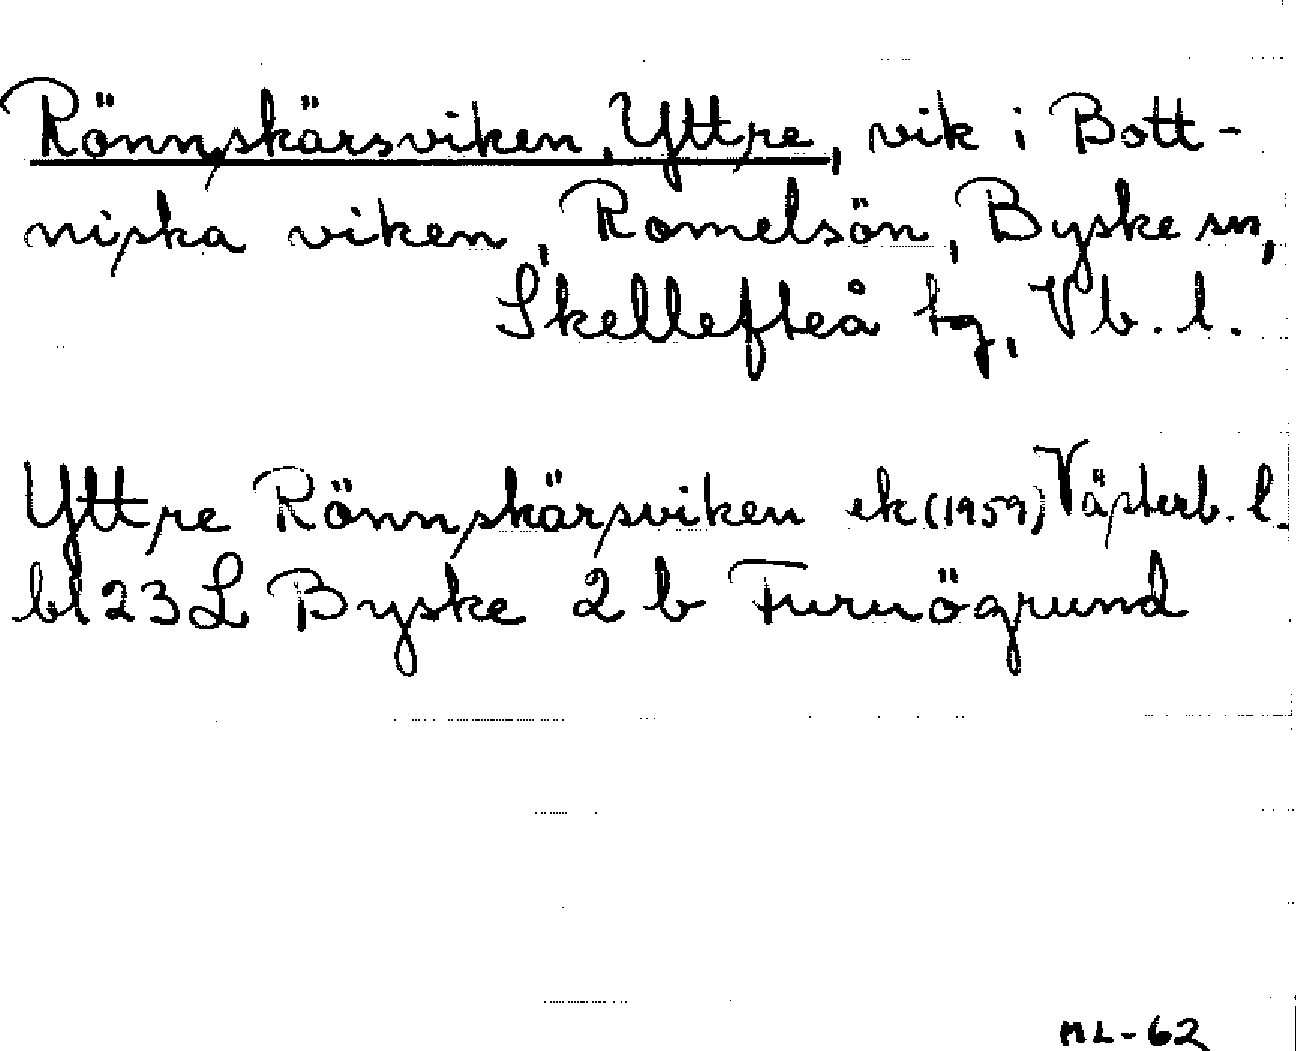 Rönnskärsviken, Yttre, vik i Bott-
niska viken, Romelsön, Byske sn,
Skellefteå tg, Vb. l.
Yttre Rönnskärsviken ek (1959) Västerb. l.
bl 23 L Byske 2 b Furuögrund
ML-62